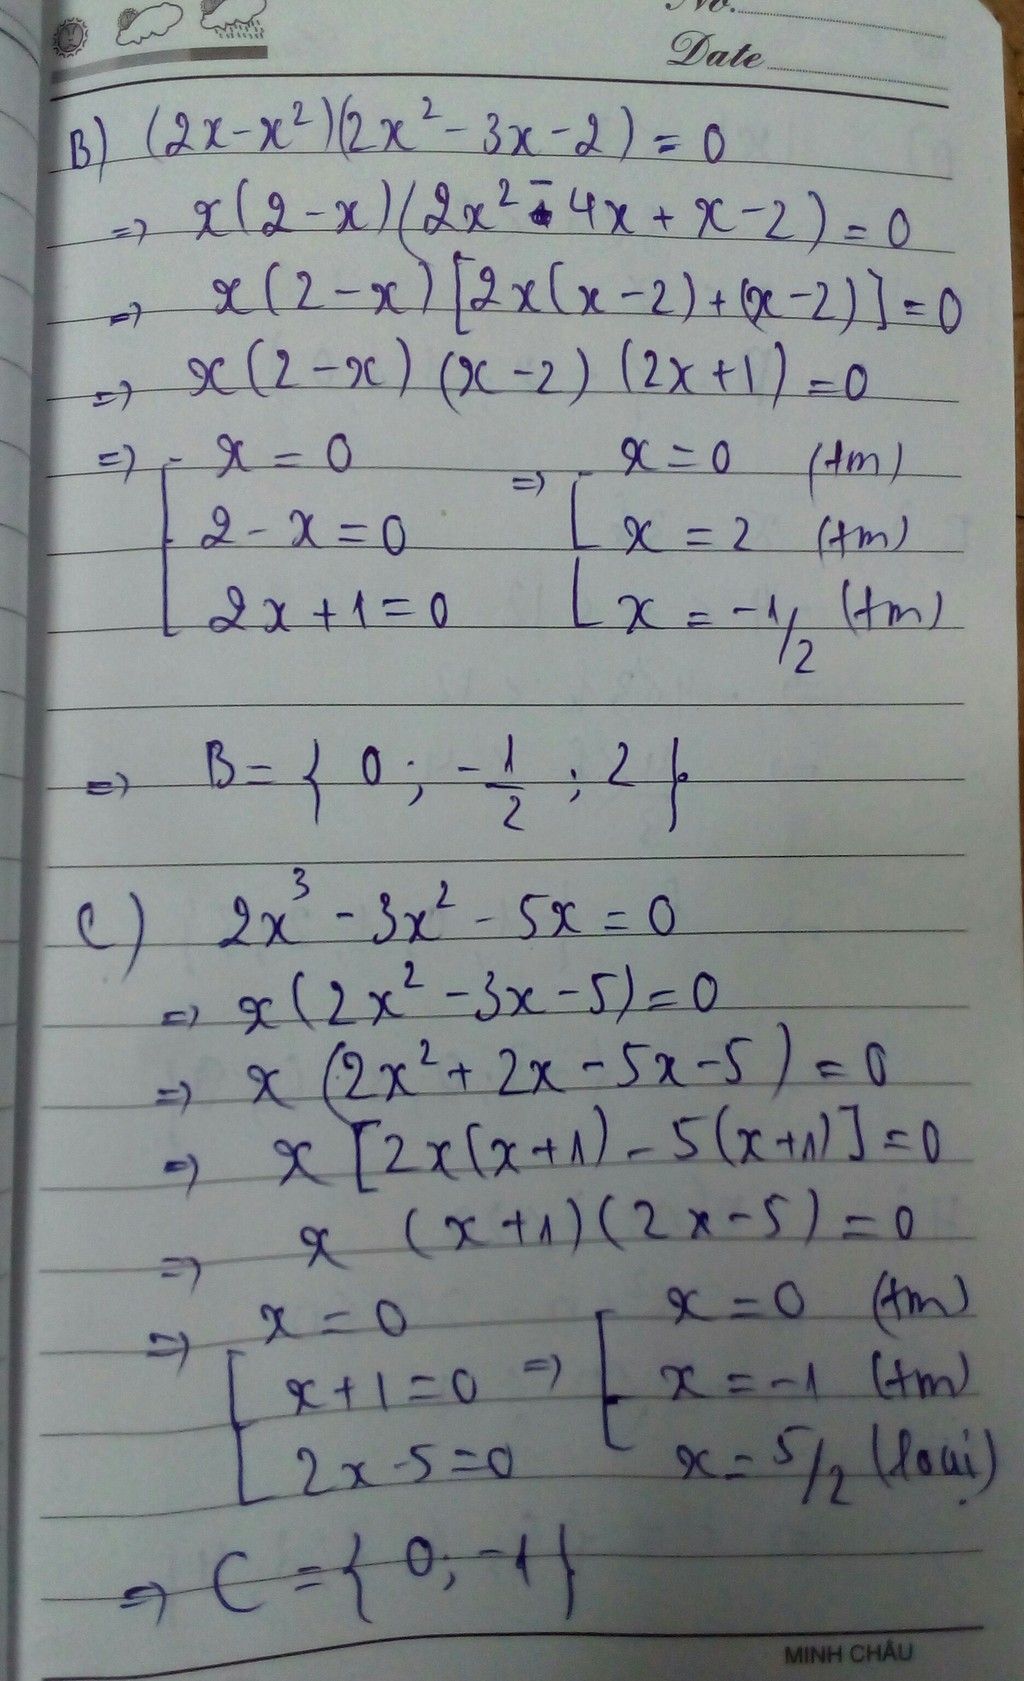 No.
Date
B) (2x-x²)(2x²-3x-2) = 0
=> x(2-x)(2x²-4x+x-2) = 0
=> x(2-x)[2x(x-2)+(x-2)] = 0
=> x(2-x)(x-2)(2x+1) = 0
=> [ x = 0 => [ x = 0 (tm)
2-x = 0 x = 2 (tm)
2x+1 = 0 x = -1/2 (tm)
=> B = { 0 ; -1/2 ; 2 }
C) 2x³-3x²-5x = 0
=> x(2x²-3x-5) = 0
=> x(2x²+2x-5x-5) = 0
=> x[2x(x+1)-5(x+1)] = 0
=> x (x+1)(2x-5) = 0
=> [ x = 0 => [ x = 0 (tm)
x+1 = 0 x = -1 (tm)
2x-5 = 0 x = 5/2 (loại)
=> C = { 0; -1 }
MINH CHÂU